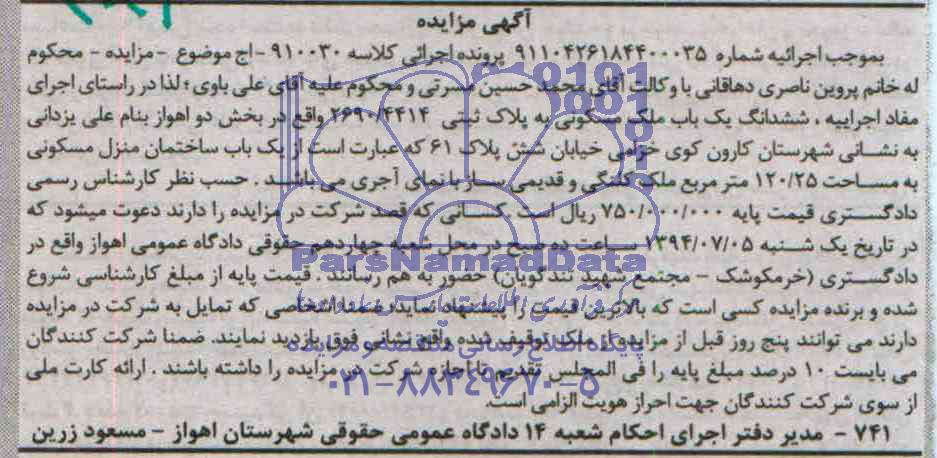 آگهی مزایده
بموجب اجرائیه شماره ۹۱۱۰۴۲۶۱۸۴۴۰۰۰۳۵ پرونده اجرائی کلاسه ۹۱۰۰۳۰ -اج موضوع -مزایده- محکوم
له خانم پروین ناصری دهاقانی با وکالت آقای محمد حسین مسرتی و محکوم علیه آقای علی باوی؛ لذا در راستای اجرای
مفاد اجراییه ، ششدانگ یک باب ملک مسکونی به پلاک ثبتی ۲۶۹۰/۴۴۱۴ واقع در بخش دو اهواز بنام علی یزدانی
به نشانی شهرستان کارون کوی خزامی خیابان شش پلاک ۶۱ که عبارت است از یک باب ساختمان منزل مسکونی
به مساحت ۱۲۰/۲۵ متر مربع ملک کلنگی و قدیمی ساز با نمای آجری می باشد . حسب نظر کارشناس رسمی
دادگستری قیمت پایه ۷۵۰/۰۰۰/۰۰۰ ریال است .کسانی که قصد شرکت در مزایده را دارند دعوت میشود که
در تاریخ یک شنبه ۱۳۹۴/۰۷/۰۵ ساعت ده صبح در محل شعبه چهاردهم حقوقی دادگاه عمومی اهواز واقع در
دادگستری (خرمکوشک - مجتمع شهید تندگویان) حضور به هم رسانند. قیمت پایه از مبلغ کارشناسی شروع
شده و برنده مزایده کسی است که بالاترین قیمت را پیشنهاد نماید. ضمنا اشخاصی که تمایل به شرکت در مزایده
دارند می توانند پنج روز قبل از مزایده از ملک توقیف شده واقع نشانی فوق بازدید نمایند. ضمنا شرکت کنندگان
می بایست ۱۰ درصد مبلغ پایه را فی المجلس تقدیم تا اجازه شرکت در مزایده را داشته باشند . ارائه کارت ملی
از سوی شرکت کنندگان جهت احراز هویت الزامی است.
۷۴۱ - مدیر دفتر اجرای احکام شعبه ۱۴ دادگاه عمومی حقوقی شهرستان اهواز - مسعود زرین
ParsNamadData
پایگاه اطلاع رسانی مناقصه و مزایده
۰۲۱-۸۸۳۴۹۶۷۰-۵